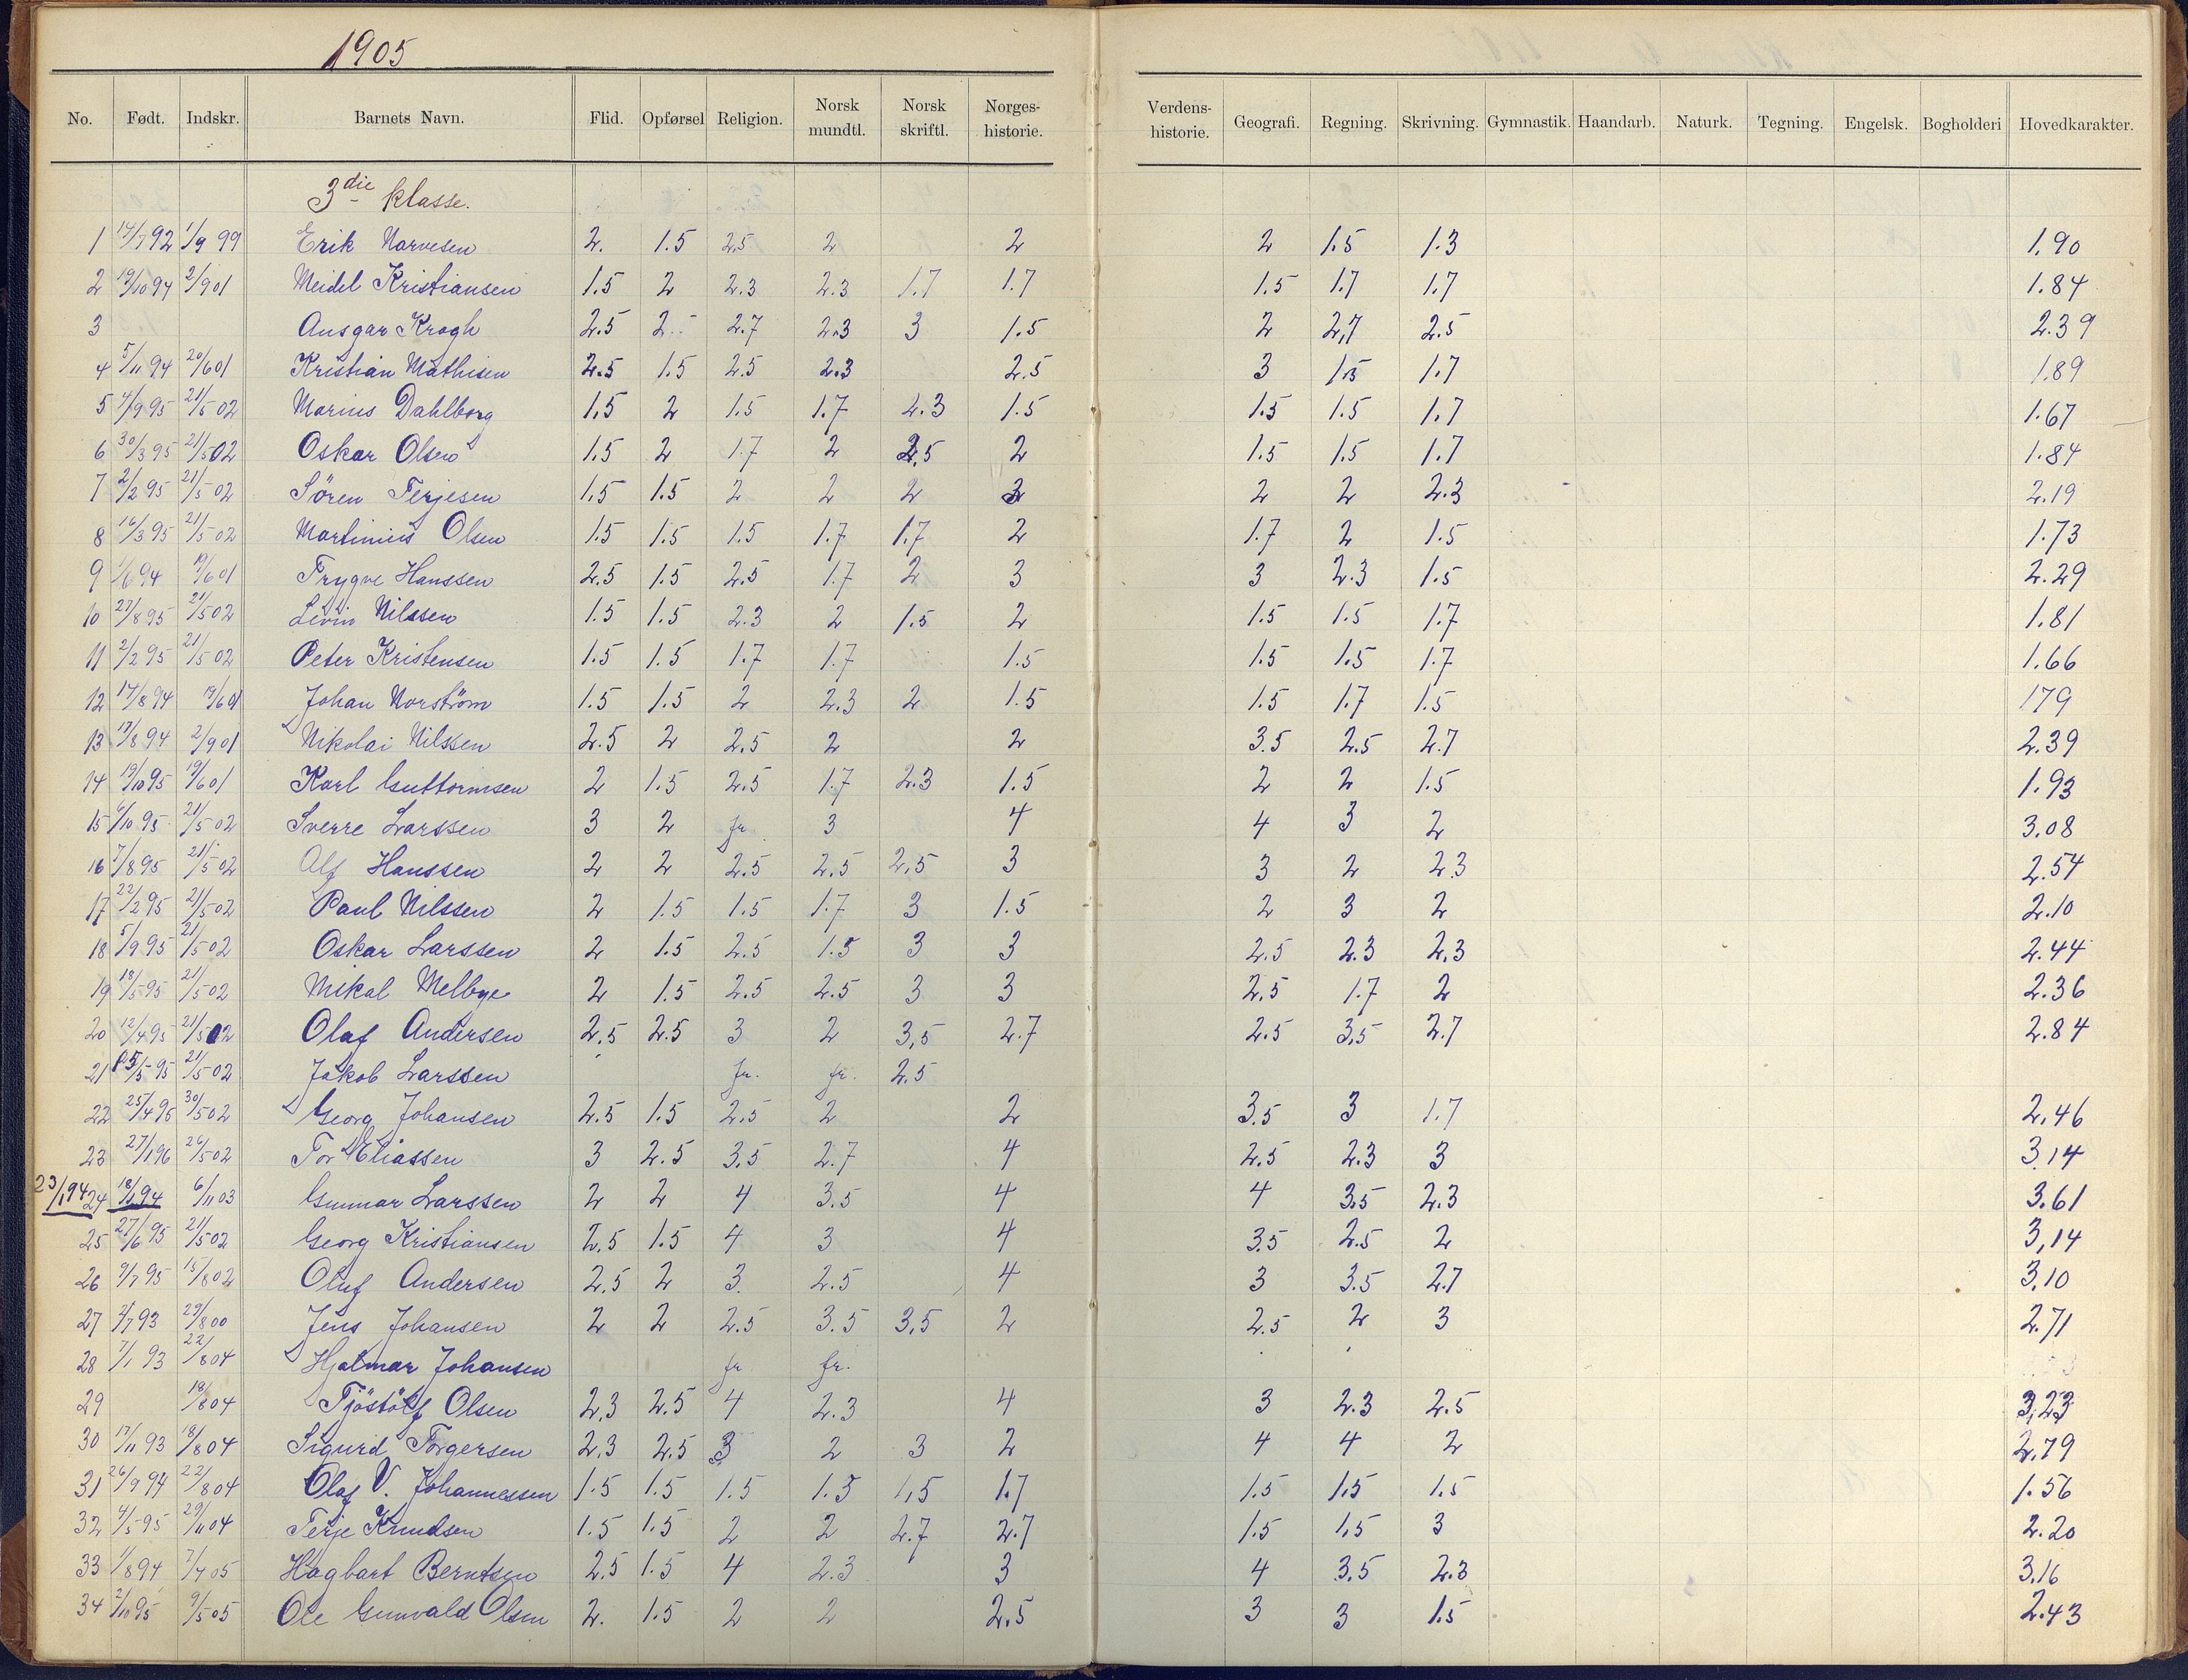 1905
No. Født. Indskr. Barnets Navn. Flid. Opførsel Religion. Norsk mundtl. Norsk skriftl. Norges-historie. Verdens-historie. Geografi. Regning. Skrivning. Gymnastik. Haandarb. Naturk. Tegning. Engelsk. Bogholderi Hovedkarakter.
3die klasse.
1 14/7 92 1/9 99 Erik Narvesen 2. 1.5 2.5 2 2 2 1.5 1.3 1.90
2 19/10 94 2/9 01 Meidel Kristiansen 1.5 2 2.3 2.3 1.7 1.7 1.5 1.7 1.7 1.84
3 Ansgar Krogh 2.5 2 2.7 2.3 3 1.5 2 2,7 2.5 2.39
4 5/11 94 20/6 01 Kristian Mathisen 2.5 1.5 2.5 2.3 2.5 3 1.5 1.7 1.89
5 4/9 95 21/5 02 Marius Dahlborg 1.5 2 1.5 1.7 2.3 1.5 1.5 1.5 1.7 1.67
6 30/3 95 21/5 02 Oskar Olsen 1.5 2 1.7 2 2.5 2 1.5 1.5 1.7 1.84
7 2/2 95 21/5 02 Sören Terjesen 1.5 1.5 2 2 2 3 2 2 2.3 2.19
8 16/3 95 21/5 02 Martinius Olsen 1.5 1.5 1.5 1.7 1.7 2 1.7 2 1.5 1.73
9 1/6 94 19/6 01 Trygve Hanssen 2.5 1.5 2.5 1.7 2 3 3 2.3 1.5 2.29
10 27/8 95 21/5 02 Levin Nilssen 1.5 1.5 2.3 2 1.5 2 1.5 1.5 1.7 1.81
11 2/2 95 21/5 02 Peter Kristensen 1.5 1.5 1.7 1.7 1.5 1.5 1.5 1.7 1.66
12 14/8 94 19/6 01 Johan Norström 1.5 1.5 2 2.3 2 1.5 1.5 1.7 1.5 179
13 17/8 94 2/9 01 Nikolai Nilssen 2.5 2 2.5 2 2 3.5 2.5 2.7 2.39
14 19/10 95 19/6 01 Karl Guttormsen 2 1.5 2.5 1.7 2.3 1.5 2 2 1.5 1.93
15 6/10 95 21/5 02 Sverre Larssen 3 2 fr. 3 4 4 3 2 3.08
16 7/8 95 21/5 02 Alf Hanssen 2 2 2.5 2.5 2.5 3 3 2 2.3 2.54
17 22/2 95 21/5 02 Paul Nilssen 2 1.5 1.5 1.7 3 1.5 2 3 2 2.10
18 5/9 95 21/5 02 Oskar Larssen 2 1.5 2.5 1.5 3 3 2.5 2.3 2.3 2.44
19 18/5 95 21/5 02 Mikal Melbye 2 1.5 2.5 2.5 3 3 2.5 1.7 2 2.36
20 12/4 95 21/5 02 Olaf Andersen 2.5 2.5 3 2 3,5 2.7 2.5 3,5 2.7 2.84
21 25/5 95 21/5 02 Jakob Larssen fr. fr. 2.5
22 25/4 95 30/5 02 Georg Johansen 2.5 1.5 2.5 2 2 3.5 3 1.7 2,46
23 27/1 96 26/5 02 Tor Eliassen 3 2.5 3.5 2.7 4 2.5 2.3 3 3.14
23/1 94 24 18/1 94 6/11 03 Gunnar Larssen 2 2 4 3.5 4 4 3.5 2.3 3.61
25 27/6 95 21/5 02 Georg Kristiansen 2.5 1.5 4 3 4 3.5 2.5 2 3,14
26 9/7 95 15/8 02 Oluf Andersen 2.5 2 3. 2.5 4 3 3.5 2.7 3,10
27 4/7 93 29/8 00 Jens Johansen 2 2 2.5 3.5 3,5 2 2.5 2 3 2.71
28 7/1 93 22/8 04 Hjalmar Johansen fr fr.
29 18/8 04 Tjöstölf Olsen 2,3 2.5 4 2.3 4 3 2.3 2.5 3,23
30 17/11 93 18/8 04 Sigurd Torgersen 2,3 2.5 3 2 3 2 4 4 2 2,79
31 26/9 94 22/8 04 Olaf V. Johannessen 1.5 1.5 1.5 1.3 1,5 1.7 1.5 1.5 1.5 1.56
32 4/5 95 29/11 04 Terje Knudsen 1.5 1.5 2 2 2.7 2.7 1.5 1.5 3 2.20
33 1/8 94 7/4 05 Hagbart Berntsen 2.5 1.5 4 2.3 3 4 3.5 2.3 3.16
34 2/10 95 9/5 05 Ole Gunvald Olsen 2. 1.5 2 2 2.5 3 3 1.5 2.43